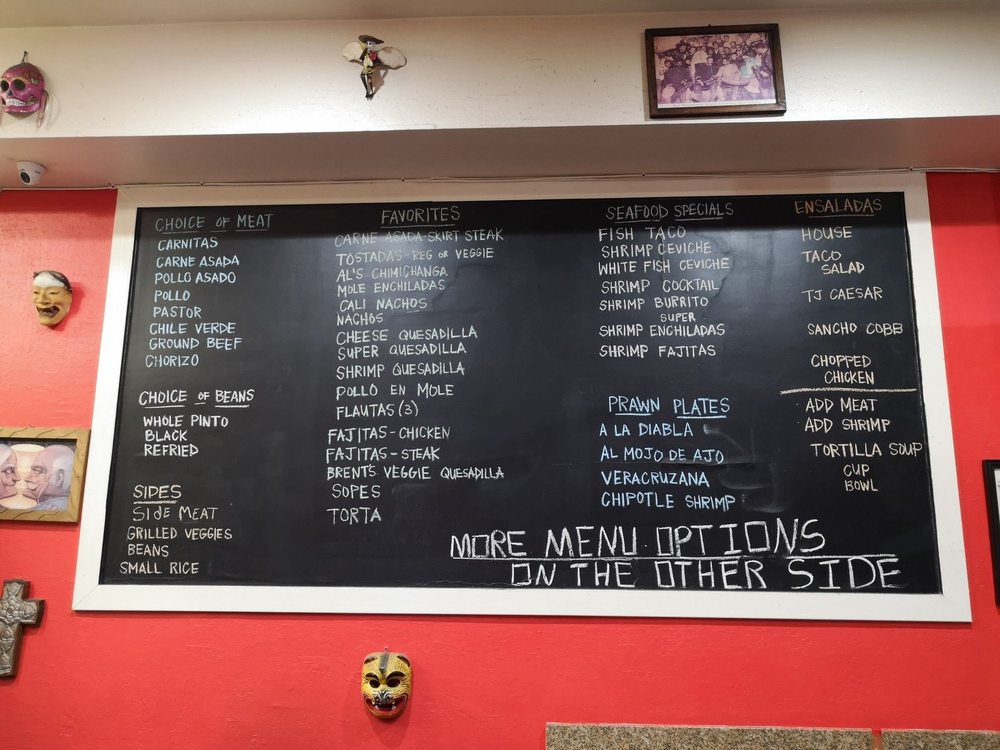 CHOICE OF MEAT
CARNITAS
CARNE ASADA
POLLO ASADO
POLLO
PASTOR
CHILE VERDE
GROUND BEEF
CHORIZO
CHOICE OF BEANS
WHOLE PINTO
BLACK
REFRIED
SIDES
SIDE MEAT
GRILLED VEGGIES
BEANS
SMALL RICE
FAVORITES
CARNE ASADA-SKIRT STEAK
TOSTADAS-REG OR VEGGIE
AL'S CHIMICHANGA
MOLE ENCHILADAS
CALI NACHOS
NACHOS
CHEESE QUESADILLA
SUPER QUESADILLA
SHRIMP QUESADILLA
POLLO EN MOLE
FLAUTAS (3)
FAJITAS-CHICKEN
FAJITAS-STEAK
BRENT'S VEGGIE QUESADILLA
SOPES
TORTA
SEAFOOD SPECIALS
FISH TACO
SHRIMP CEVICHE
WHITE FISH CEVICHE
SHRIMP COCKTAIL
SHRIMP BURRITO
SUPER
SHRIMP ENCHILADAS
SHRIMP FAJITAS
PRAWN PLATES
A LA DIABLA
AL MOJO DE AJO
VERACRUZANA
CHIPOTLE SHRIMP
ENSALADAS
HOUSE
TACO
SALAD
TJ CAESAR
SANCHO COBB
CHOPPED
CHICKEN
ADD MEAT
ADD SHRIMP
TORTILLA SOUP
CUP
BOWL
MORE MENU OPTIONS
ON THE OTHER SIDE